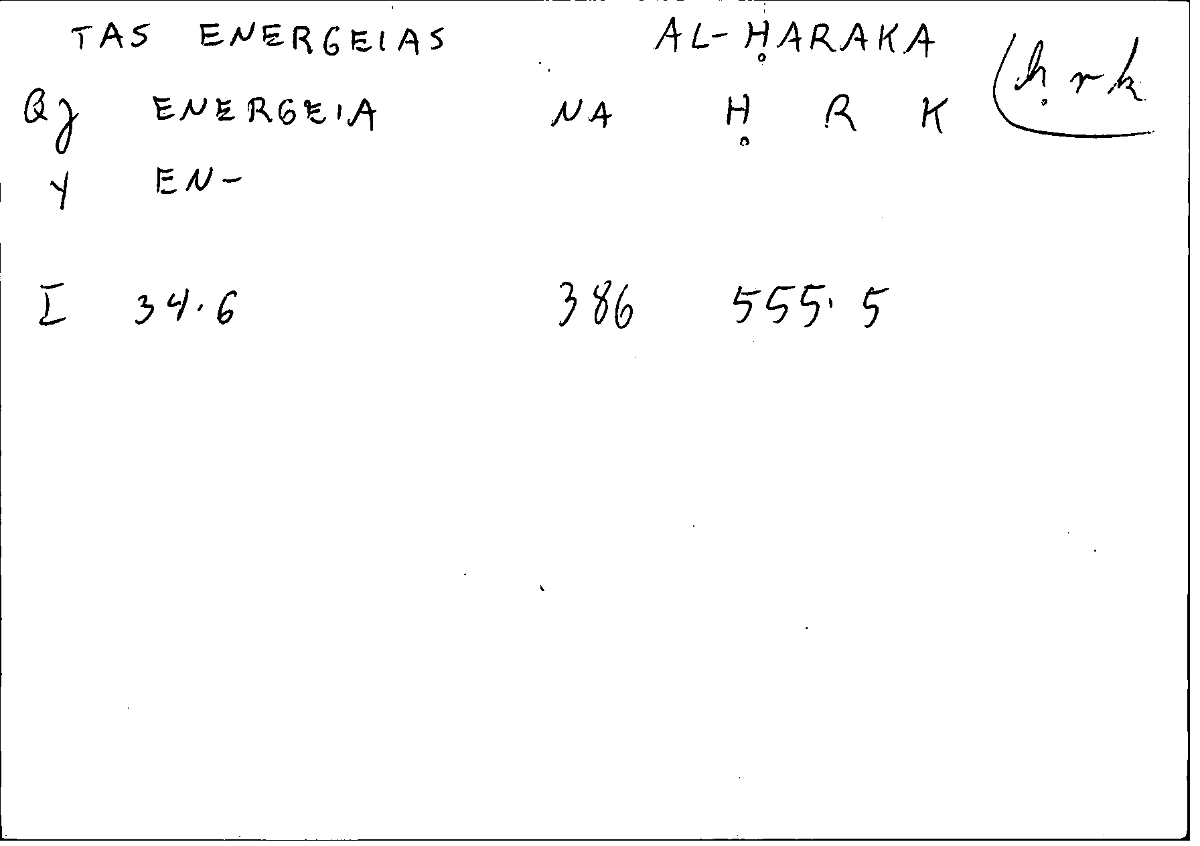 TAS ENERGEIAS AL-ḤARAKA
Qγ ENERGEIA NA Ḥ R K (ḥrk
Y EN-
I 34.6 386 555.5